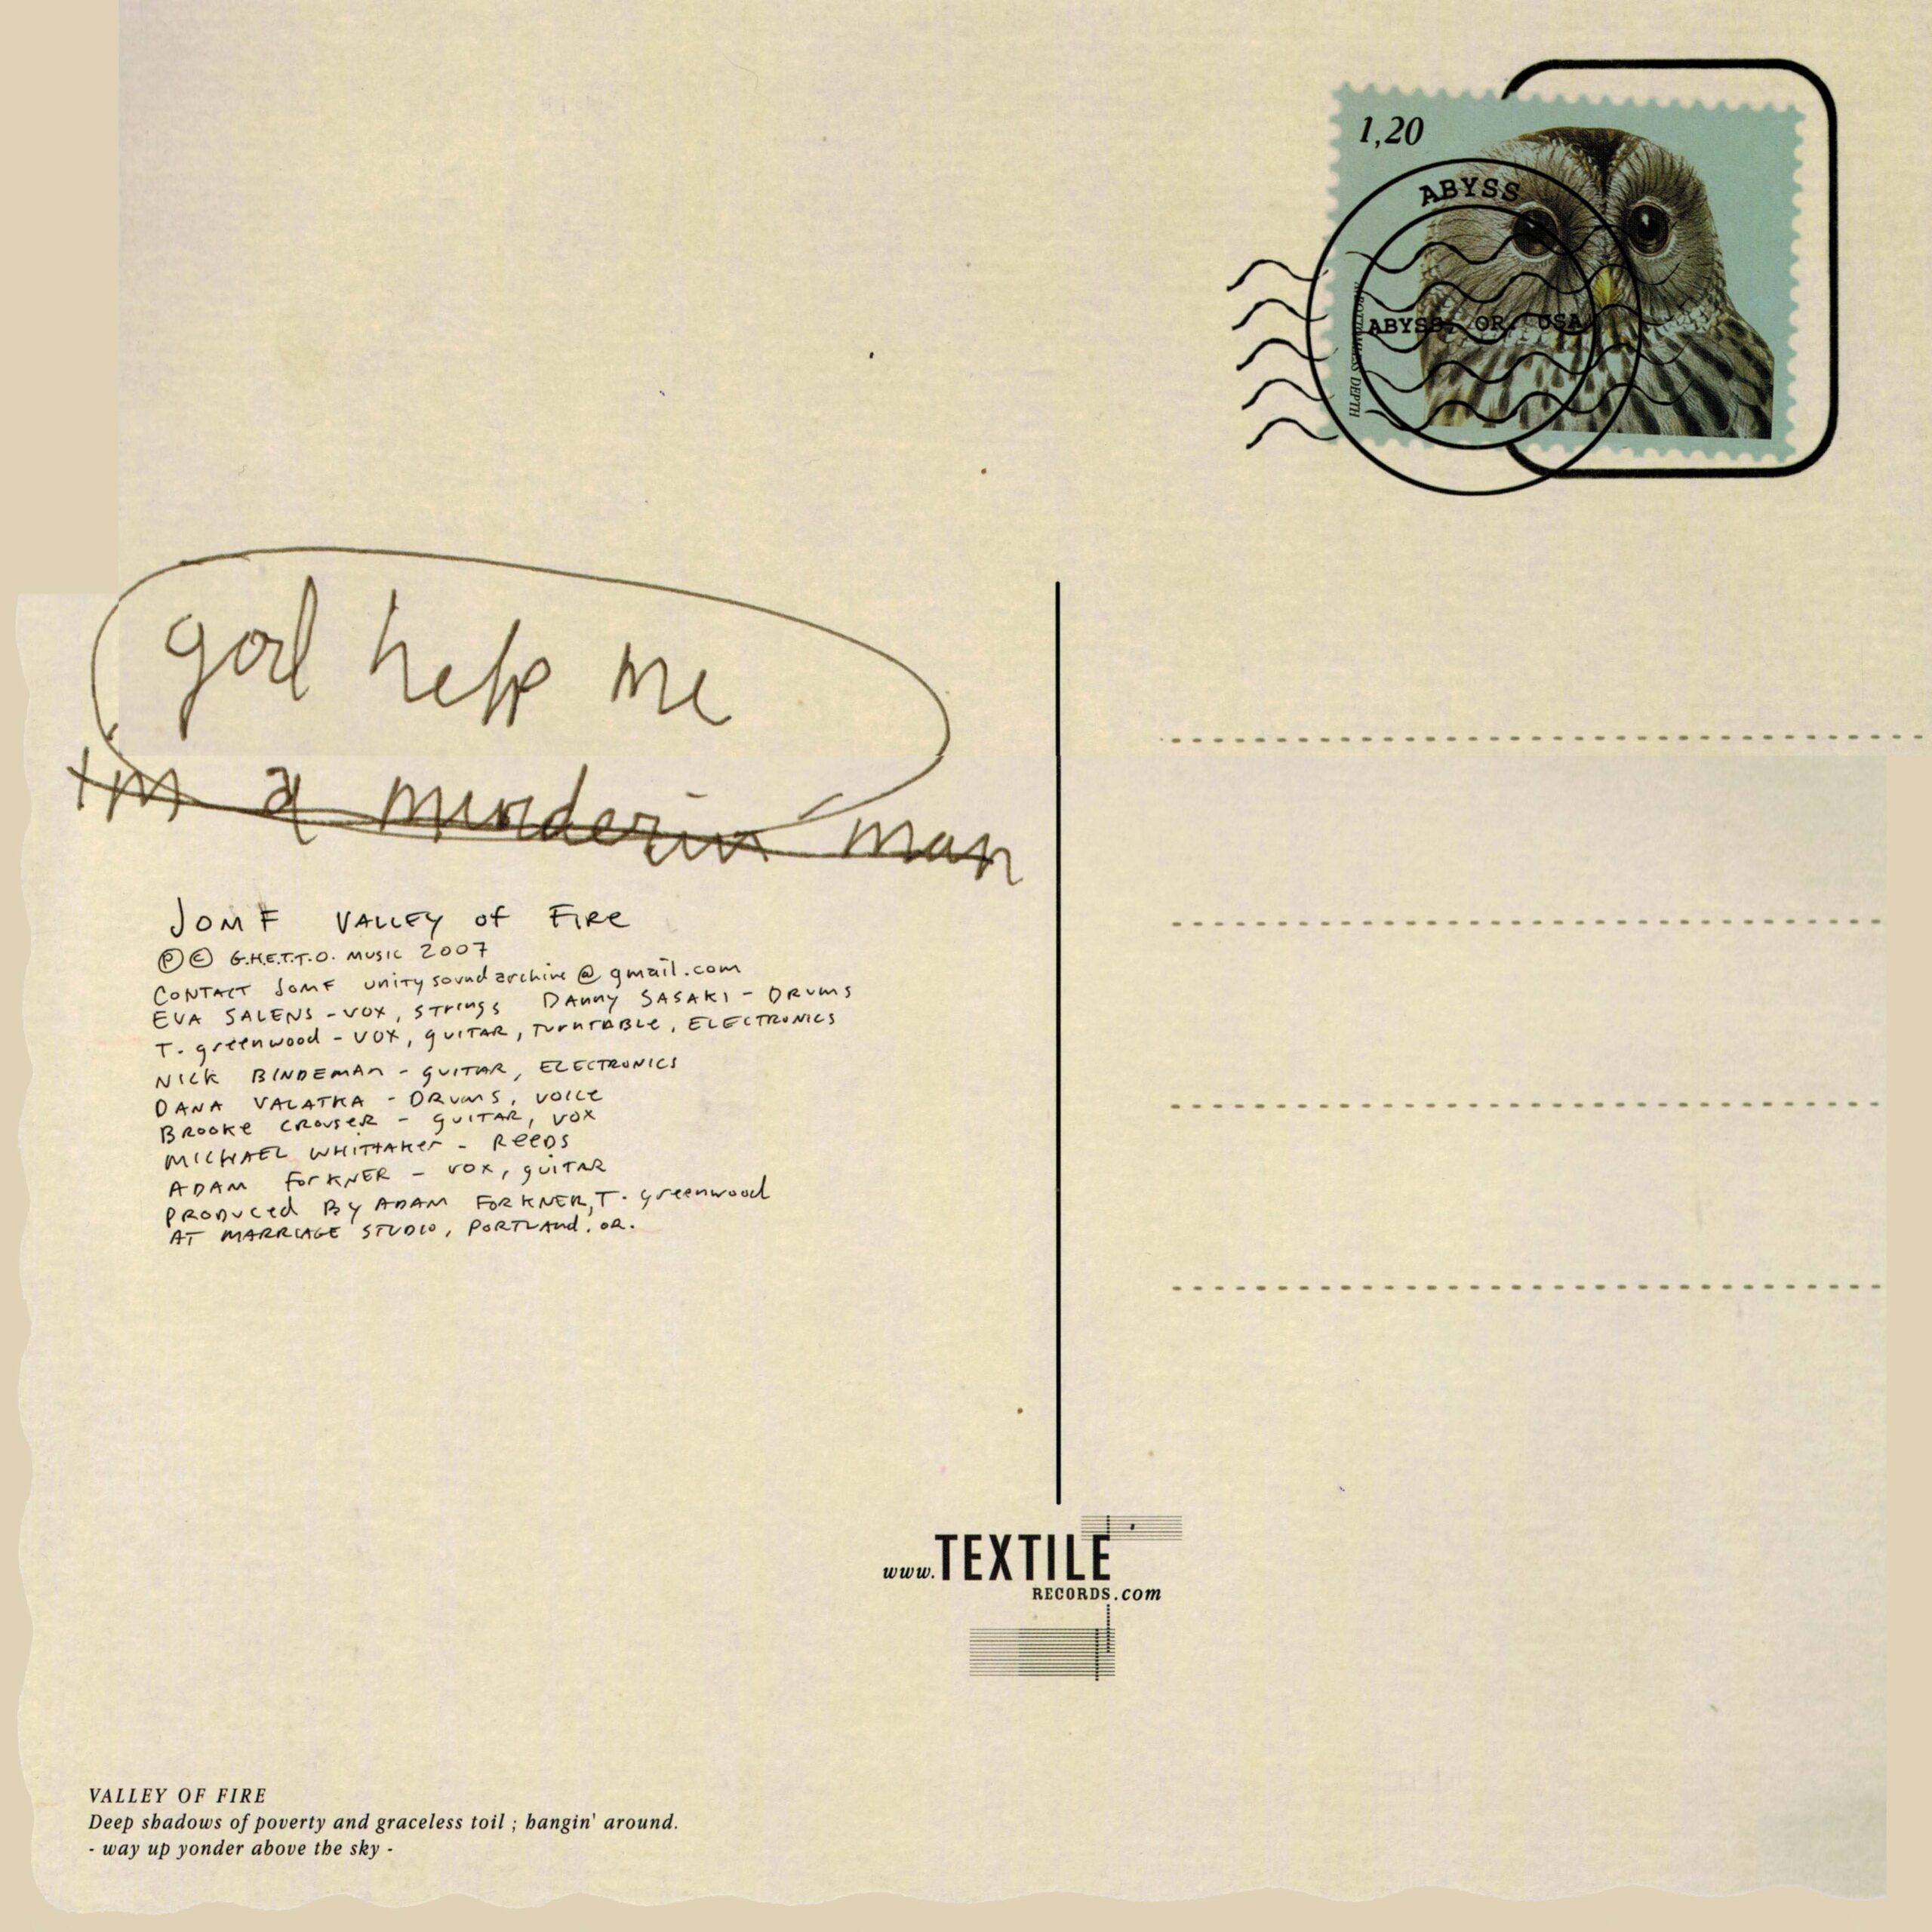 1,20
ABYSS
ABYSS, OR. USA
god help me
Im a murderin man
JOMF VALLEY of FIRE
℗ © G.H.E.T.T.O. MUSIC 2007
CONTACT JOMF unitysoundarchive@gmail.com
EVA SALENS - VOX, STrings DAnny SASAKI - DRums
T. greenwood - VOX, gUITAR, TurnTABLe, ELECTRONICS
NICK BINDEMAn - gUITAR, ELECTRONICS
DANA VALATKA - DRums, VOICE
BROOKE CROUSER - gUITAR, VOX
MICHAEL WHITTAKEr - REEDS
ADAM ForKNER - VOX, gUITAR
PRODUCed By ADAM FORKNER, T. greenwood
AT MARRIAGE STUDIO, PORTLAnd, OR.
www.TEXTILE
RECORDS.com
VALLEY OF FIRE
Deep shadows of poverty and graceless toil ; hangin' around.
- way up yonder above the sky -